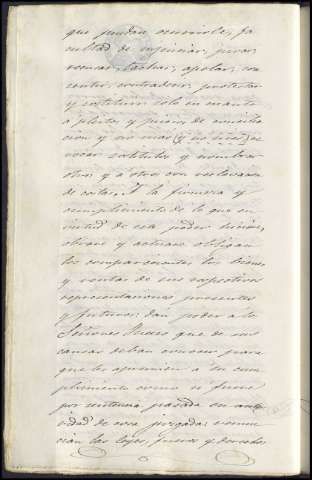 que puedan convenirles, fa
cultad de enjuiciar, jurar,
recusar, tachar, apelar, con
sentir, contradecir, protestar
y sostituir solo en cuanto
á pleitos, y juicios de concilia
cion y no mas, re
vocar sostitutos y nombrar
otros y á otros con relevacion
de costas. Y á la firmeza y
cumplimiento de lo que en
virtud de este poder hicieren,
obraren y actuaren obligan
los comparecentes los bienes
y rentas de sus respectivas
representaciones presentes
y futuros: dan poder á los
Señores Jueces que de sus
causas deban conocer para
que les apremien á su cum
plimiento como si fuere
por sentencia pasada en auto
ridad de cosa juzgada: renun
cian las leyes, fueros y derechos